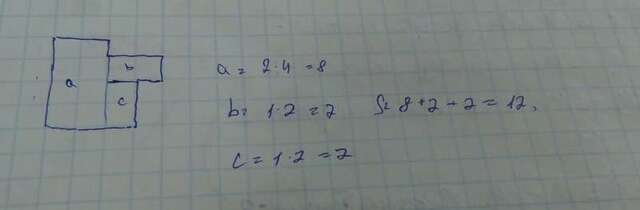 a
b
c
a = 2·4 = 8
b = 1·2 = 2 S = 8 + 2 + 2 = 12,
c = 1·2 = 2